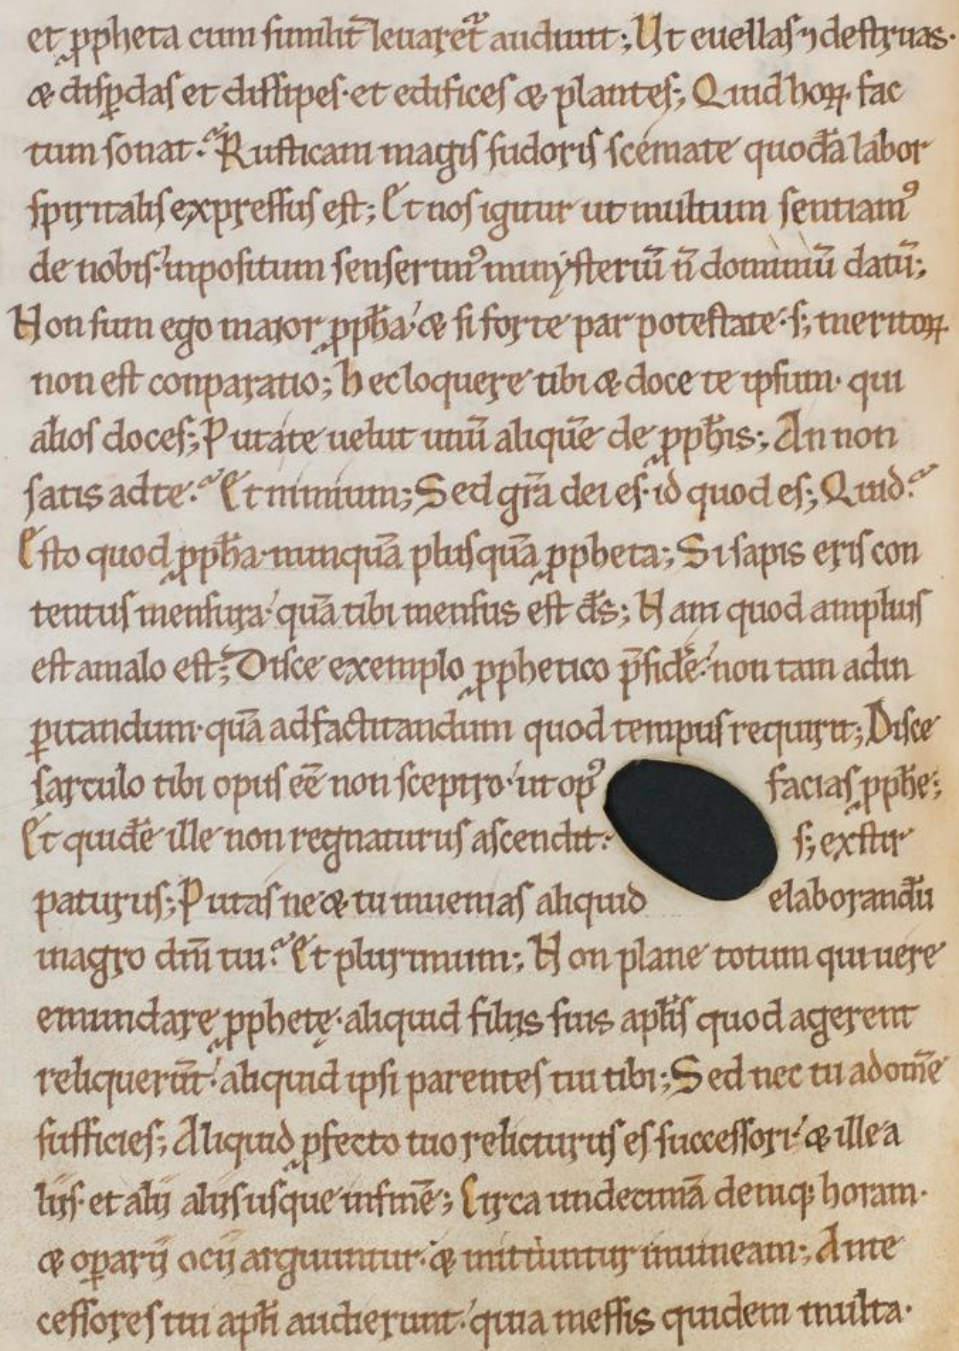 et ꝓpheta cum simili᷒t leuaret᷑ audiuit; Ut euellas ⁊ destruas·
& disꝑdas et dissipes· et edifices & plantes; Quid hoꝝ fac
tum sonat? Rusticam magis sudoris scemate quodā labor
spiritalis expressus est; Et nos igitur ut multum sentiamꝰ
de nobis· inpositum senserimꝰ mińysteriū n̄ dominiū datū;
Non sum ego maior ꝓpħa· & si forte par potestate· s; meritoꝝ
non est conparatio; hec loquere tibi & doce te ipsum· qui
alios doces; Putate uelut unū aliquē de ꝓpħis; An non
satis ad te? Et nimium; Sed gr̄a dei es· id quod es; Quid?
Esto quod ꝓpħa· nunquā plusquā ꝓpheta; Si sapis eris con
tentus mensura· quā tibi mensus est d̄s; Nam quod amplius
est a malo est; Disce exemplo ꝓphetico p̄sidē· non tam ad im
ꝑitandum· quā ad factitandum quod tempus requirit; Disce
sarculo tibi opus eē̄ non sceptro· ut opꝰ facias ꝓpħe;
Et quidē ille non regnaturus ascendit· s; exstir
paturus; Putas ne & tu inuenias aliquid elaborandū
in agro dn̄i tui? Et plurimum; Non plane totum qui uere
emundare ꝓphetę· aliquid filiis suis apl̄is quod agerent
reliquerūt· aliquid ipsi parentes tui tibi; Sed nec tu ad om̄e
sufficies; Aliquid ꝓfecto tuo relicturus es successori· & ille a
liis· et alii aliis usque in finē; Circa undecimā deniqꝫ horam·
& oꝑarii ocii arguuntur· & mittuntur in uineam; Ante
cessores tui apl̄i audierunt· quia messis quidem multa·